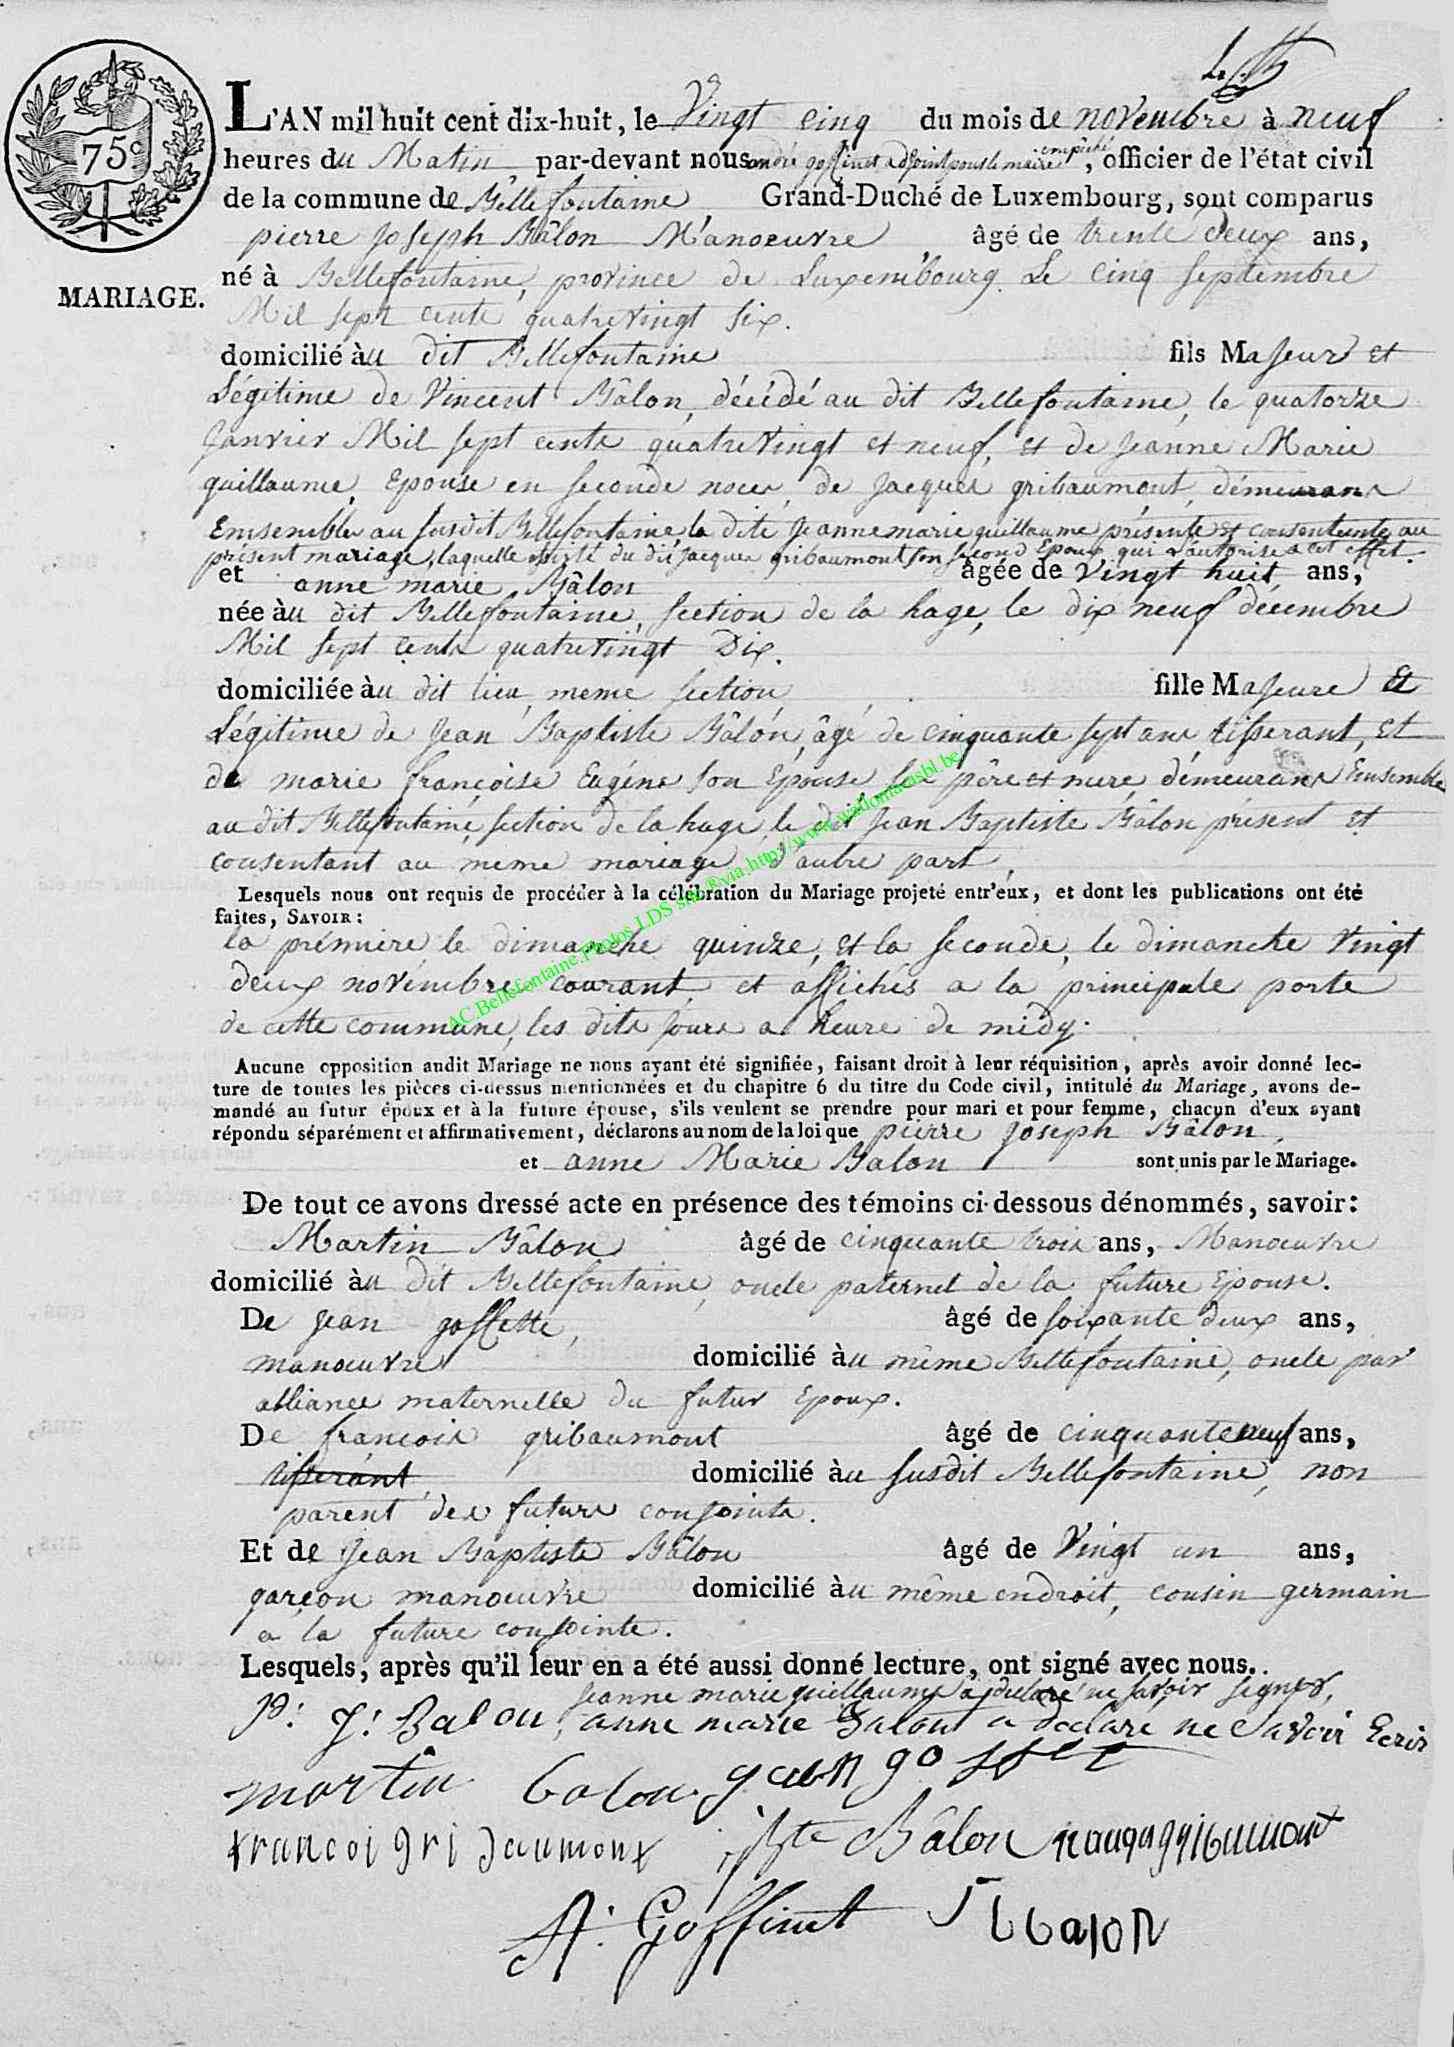 L'AN mil huit cent dix-huit, le Vingt cinq du mois de novembre à neuf
75c
heures du Matin par-devant nous andré goffinet adjoint pour le maire empéché, officier de l'état civil
de la commune de Bellefontaine Grand-Duché de Luxembourg, sont comparus
pierre Joseph Bâlon Manoeuvre âgé de trente deux ans,
MARIAGE.
né à Bellefontaine, province de Luxembourg. Le cinq septembre
Mil sept cents quatrevingt six.
domicilié àu dit Bellefontaine fils Majeur et
Légitime de Vincent Bâlon, décédé au dit Bellefontaine, le quatorze
Janvier Mil sept cents quatrevingt et neuf, et de Jeanne Marie
guillaume, Epouse en seconde noces, de Jacques gribaumont, démeurans
Emsembles au susdit Bellefontaine, la dite Jeanne marie guillaume présente et consentente au
présent mariage, laquelle du dit Jacques gribaumont son second Epoux qui l'autorise a cet effet.
et anne marie Bâlon âgée de Vingt huit ans,
née àu dit Bellefontaine, section de la hage, le dix neuf décembre
Mil sept cents quatrevingt Dix.
domiciliée àu dit lieu, meme section, fille Majeure et
Légitime de Jean Baptiste Bâlon, âgé de cinquante sept ans, tisserant, et
de marie françoise Eugéne son Epouse, ses pére et mere, démeurans Ensemble
au dit Bellefontaine, section de la hage, le dit Jean Baptiste Bâlon présent et
consentant au meme mariage, d'autre part,
AC.Bellefontaine.Photos LDS site R via http://www.wallonia.asbl.be
Lesquels nous ont requis de procéder à la célébration du Mariage projeté entr'eux, et dont les publications ont été
faites, SAVOIR :
la prémiere le dimanche quinze, et la seconde, le dimanche Vingt
deux novémbre courant, et affichés a la principale porte
de cette commune, les dits jours a heure de midy.
Aucune opposition audit Mariage ne nous ayant été signifiée, faisant droit à leur réquisition, après avoir donné lec-
ture de toutes les pièces ci-dessus mentionnées et du chapitre 6 du titre du Code civil, intitulé du Mariage, avons de-
mandé au futur époux et à la future épouse, s'ils veulent se prendre pour mari et pour femme, chacun d'eux ayant
répondu séparément et affirmativement, déclarons au nom de la loi que pierre Joseph Bâlon,
et anne Marie Balon sont unis par le Mariage.
De tout ce avons dressé acte en présence des témoins ci-dessous dénommés, savoir :
Martin Bâlon âgé de cinquante trois ans, Manoeuvre
domicilié àu dit Bellefontaine, oncle paternel de la future Epouse.
De Jean gossette, âgé de soixante deux ans,
manoeuvre domicilié àu même Bellefontaine, oncle par
alliance maternelle du futur Epoux.
De francois gribaumont âgé de cinquanteneuf ans,
tisserant, domicilié àu susdit Bellefontaine, non
parent des futurs conjoints.
Et de Jean Baptiste Bâlon âgé de Vingt un ans,
garçon manoeuvre domicilié àu même endroit, cousin germain
a la future conjointe.
Lesquels, après qu'il leur en a été aussi donné lecture, ont signé avec nous.
Jeanne marie guillaume a déclaré ne savoir signer,
P: J: Balon, anne marie Balon a déclaré ne savoir Ecrir
martin balon
francoi gribaumont Bte Bâlon
A: Goffinet